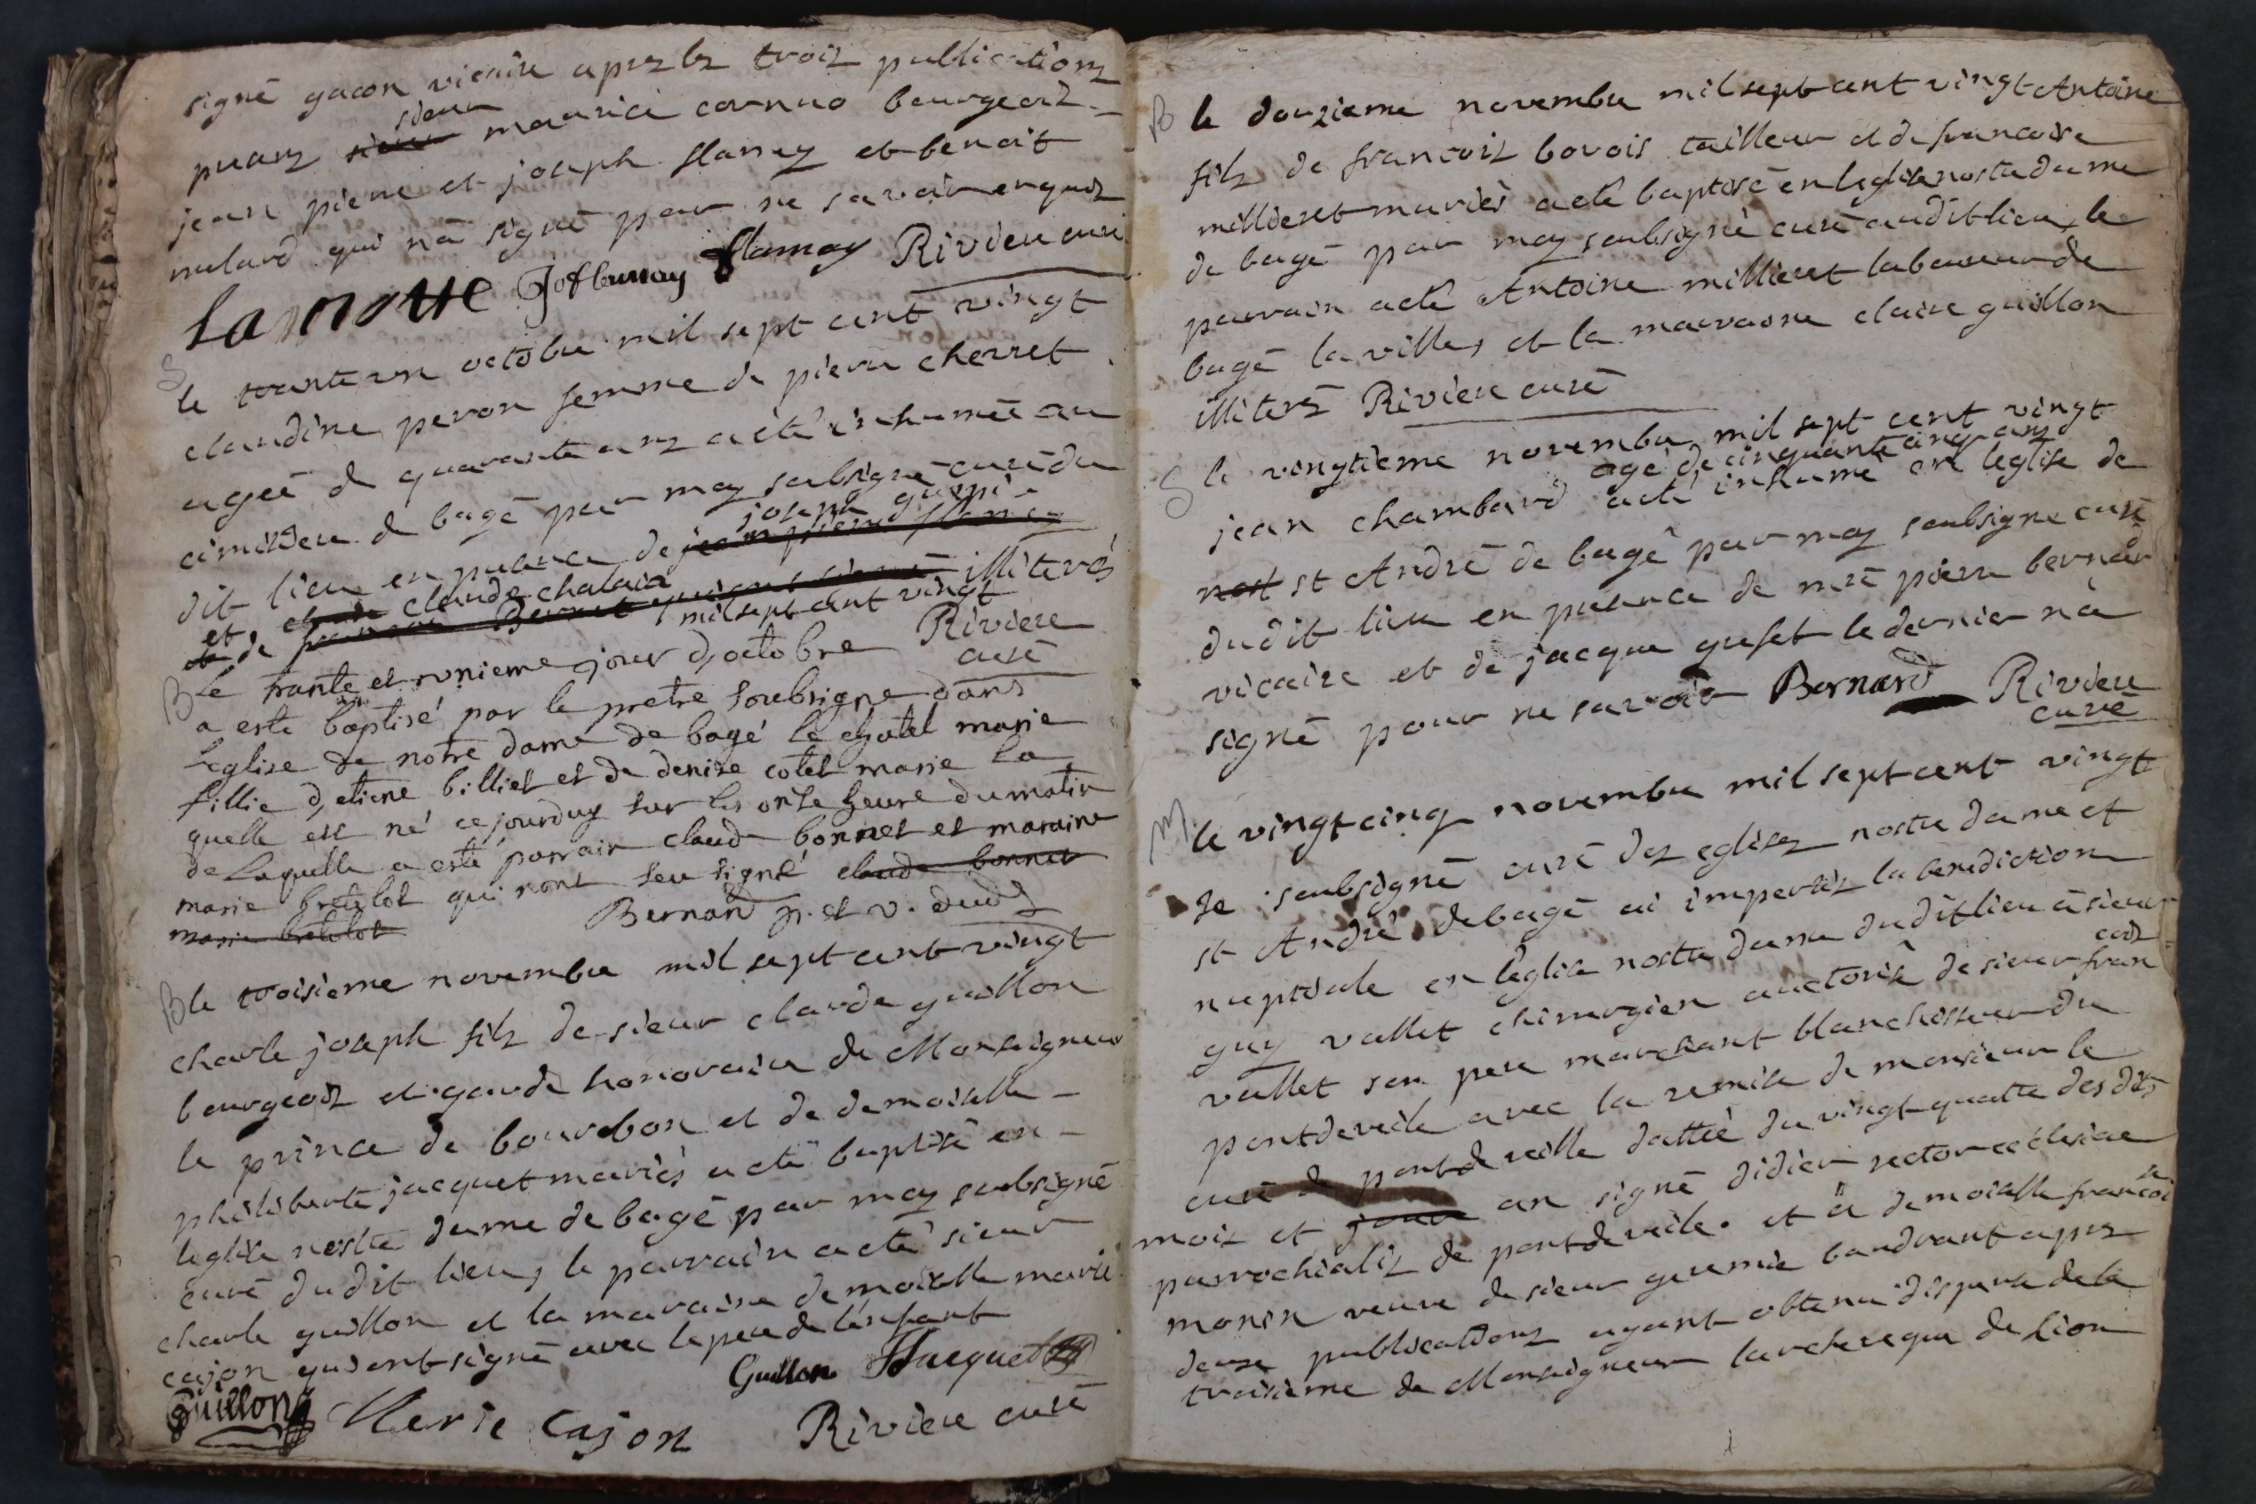 signé gacon vicaire apres les trois publications
sieur
maurice cornuo bourgeois
jean pierre et joseph flamey et benoit
mulard qui na signé pour ne savoir enquis
Lamotte Jo flamay flamay Riviere curé
S
le trante un octobre mil sept cent vingt
claudine peron femme de pierre cherret
agée de quarante ans a eté inhumée au
cimitiere de bagé par moy soubsigné curé du
joseph
dit lieu en presance de
et claude chalain
et de illiterés
mil sept cent vingt
B Le trante et unieme jour d'octobre Riviere
curé
a este baptisé par le pretre soubsigne dans
leglise de notre dame de bagé le chatel marie
fillie d'etiene billiet et de denise cotet marie la
quelle est né ce jourduy sur les onse heure du matin
de laquelle a esté parrain claude bonnet et maraine
marie bretelot qui nont seu signé claude bonnet
marie bretelot Bernard p. et v. dud
B le troisieme novembre mil sept cent vingt
charle joseph fils de sieur claude guillon
bourgeois et garde honoraire de Monseigneur
le prince de bourbon et de demoiselle
philiberte jacquet mariés a eté baptisé en
leglise nostre dame de bagé par moy soubsigné
curé dudit lieu, le parrain a eté sieur
charle guillon et la maraine demoiselle marie
cajon qui ont signé avec le pere de lenfant
Guillon Jacquet
Guillon Marie Cajon Riviere curé
B le douzieme novembre mil sept cent vingt Antoine
fils de francois bovois tailleur et de francoise
millieret mariés a eté baptisé en leglise nostre dame
de bagé par moy soubsigné curé audit lieu, le
parrain a eté Antoine millieret laboureur de
bagé la ville, et la marraine claire guillon
illiterés Riviere curé
S le vingtieme novembre mil sept cent vingt
agé de cinquante cinq ans
jean chambard a eté inhumé en leglise de
nost st André de bagé par moy soubsigné curé
dudit lieu en presance de mre pierre bernard
vicaire et de jacque guset le dernier na
signé pour ne savoir Bernard Riviere
curé
M le vingt cinq novembre mil sept cent vingt
Je soubsigné curé des eglises nostre dame et
st André de bagé ai imperti la benediction
nuptiale en leglise nostre dame dudit lieu a sieur
cois
guy vallet chirurgien auctorisé de sieur fran
vallet son pere marchant blanchisseur du
pontdevele avec la remise de monsieur le
curé de pontdeveille dattée du vingt quatre desdits
mois et jour an signé didier rector ecclesiae
se
parrochialis de pontdevele. et a demoiselle francoi
monin veuve de sieur baudrant apres
deux publications ayant obtenu dispense de la
troisieme de Monseigneur larcheveque de Lion